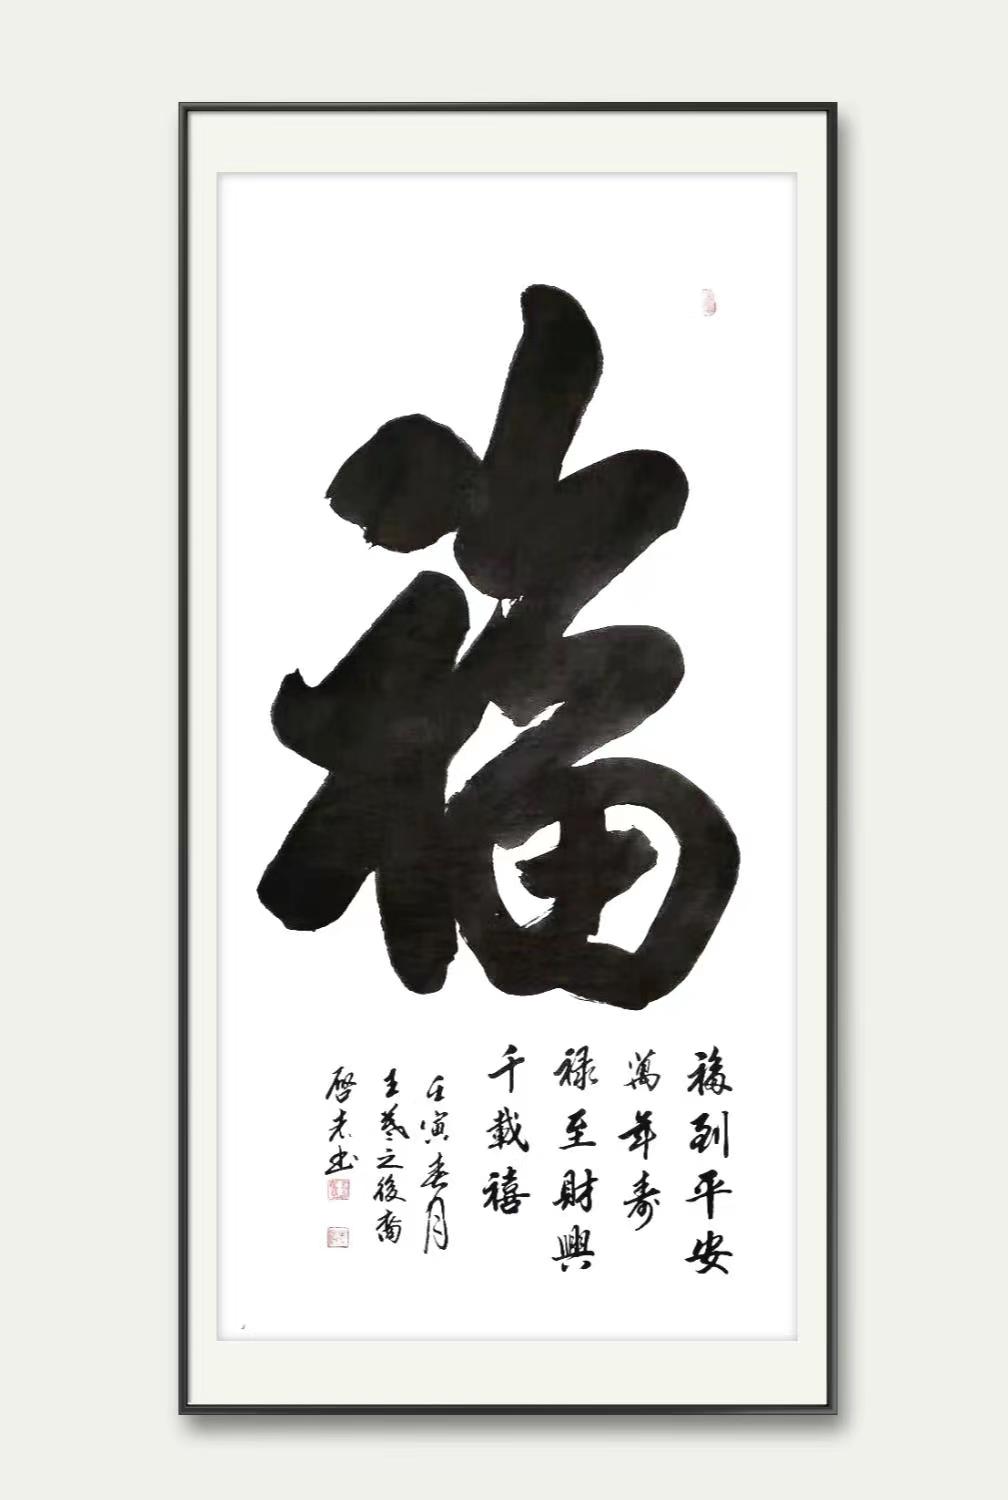 福
福到平安
萬年寿
禄至財興
千載禧
壬寅春月
王羲之後裔
啓志书